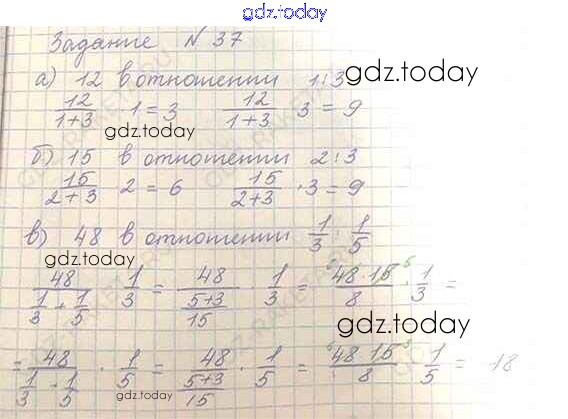 gdz.today
Задание № 37
а) 12 в отношении 1:3
gdz.today
12/(1+3) 1 = 3    12/(1+3) 3 = 9
gdz.today
б) 15 в отношении 2:3
15/(2+3) 2 = 6    15/(2+3) · 3 = 9
в) 48 в отношении 1/3 : 1/5
gdz.today
48/(1/3 + 1/5) 1/3 = 48/((5+3)/15) · 1/3 = (48 · 15)/8 · 1/3 =
gdz.today
= 48/(1/3 + 1/5) · 1/5 = 48/((5+3)/15) · 1/5 = (48 · 15)/8 · 1/5 = 18
gdz.today